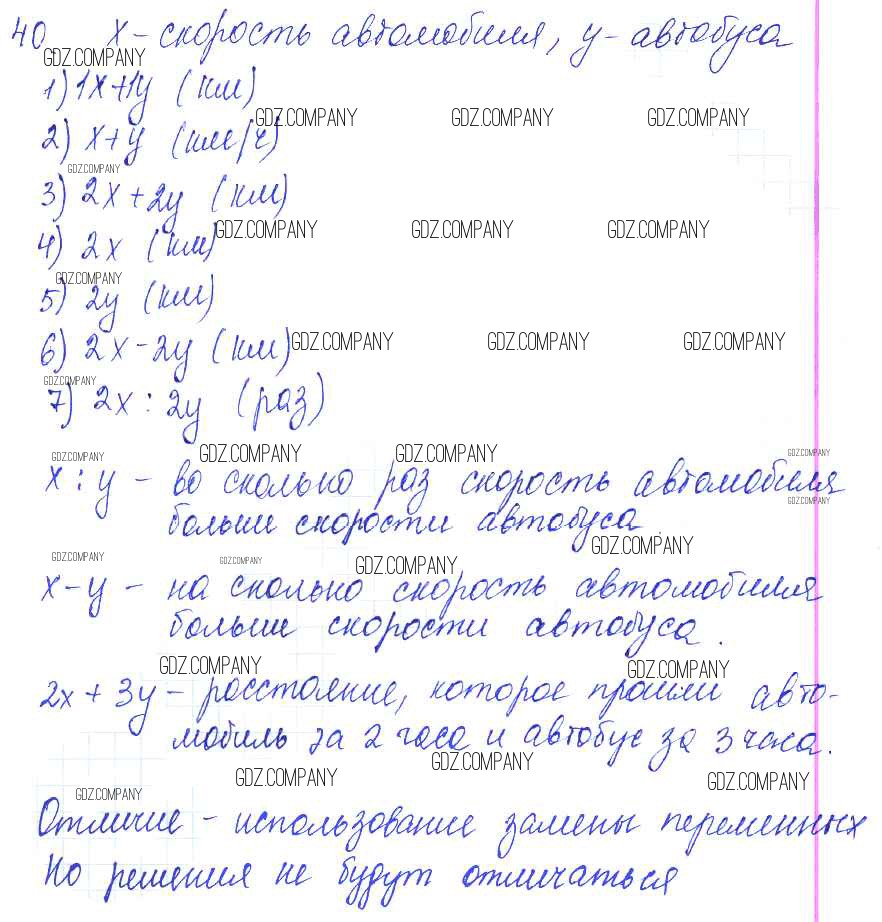 40 х - скорость автомобиля, у - автобуса
GDZ.COMPANY
1) 1х+1у (км)
GDZ.COMPANY GDZ.COMPANY GDZ.COMPANY
2) х+у (км/ч)
GDZ.COMPANY
3) 2х+2у (км)
GDZ.COMPANY GDZ.COMPANY GDZ.COMPANY
4) 2х (км)
GDZ.COMPANY
5) 2у (км)
6) 2х-2у (км)
GDZ.COMPANY GDZ.COMPANY GDZ.COMPANY
GDZ.COMPANY
7) 2х : 2у (раз)
GDZ.COMPANY GDZ.COMPANY GDZ.COMPANY GDZ.COMPANY
х : у - во сколько раз скорость автомобиля
GDZ.COMPANY
больше скорости автобуса
GDZ.COMPANY
GDZ.COMPANY GDZ.COMPANY GDZ.COMPANY
х-у - на сколько скорость автомобиля
больше скорости автобуса.
GDZ.COMPANY GDZ.COMPANY
2х + 3у - расстояние, которое прошли авто-
мобиль за 2 часа и автобус за 3 часа.
GDZ.COMPANY
GDZ.COMPANY GDZ.COMPANY
GDZ.COMPANY
Отличие - использование замены переменных
Но решения не будут отличаться